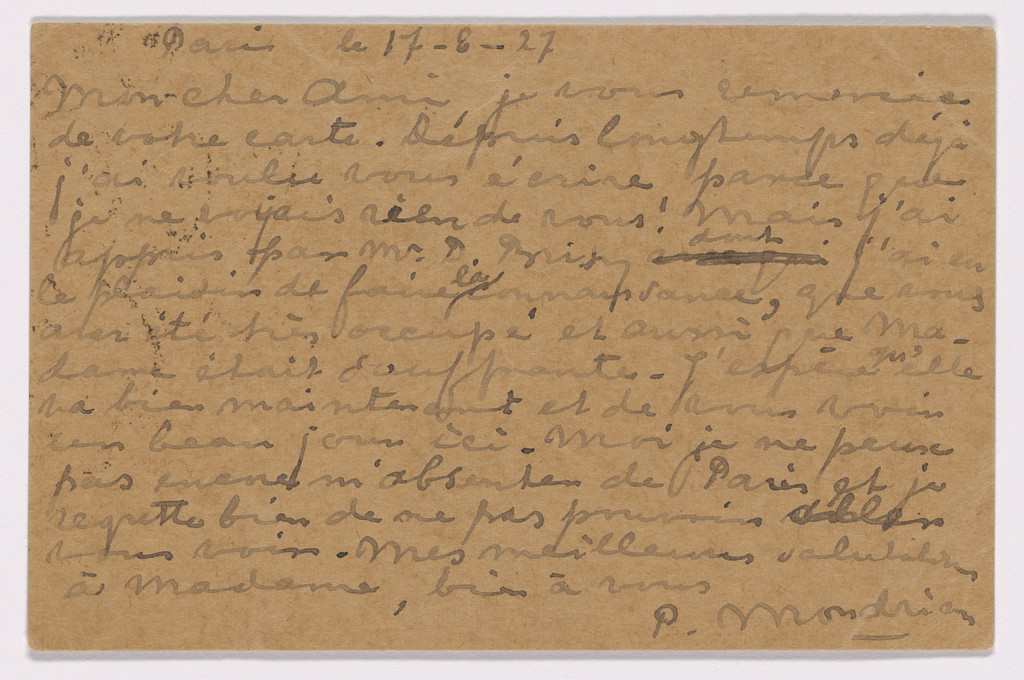 Paris le 17-8-27
Mon cher Ami, je vous remercie
de votre carte. Dépuis longtemps déjà
j'ai voulu vous écrire parce que
je ne voyais rien de vous! Mais j'ai
appris par Mr. P. dont j'ai eu
le plaisir de faire la connaissance, que vous
avez été très occupé et aussi que Ma-
dame était souffrante. J'espère qu'elle
va bien maintenant et de vous voir
un beau jour ici. Moi je ne peux
pas encore m'absenter de Paris et je
regrette bien de ne pas pouvoir aller
vous voir. Mes meilleures salutations
à Madame, bien à vous
P. Mondrian